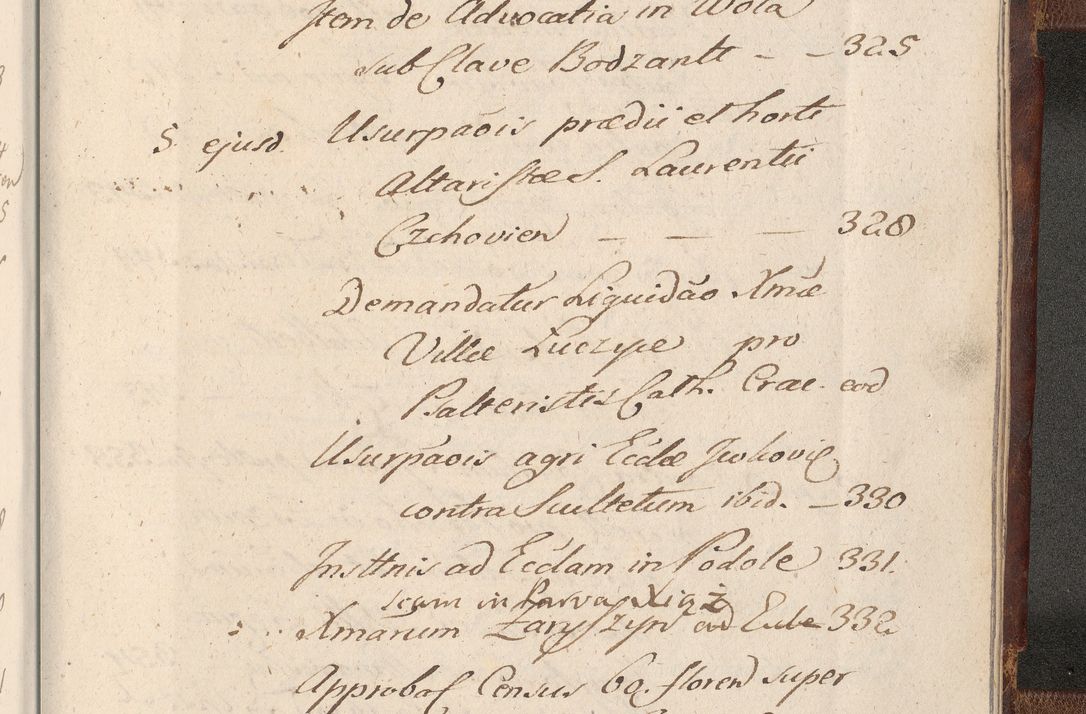 Item de Advocatia in Wola
sub Clave Bodzante - - 325
5 ejusd. Usurpãois prædii et horti
Altaristæ S. Laurentii
Czchovien — — — 328
Demandatur Liquidão Xmæ
Villæ Luczyce pro
Psalteristis Cath. Crac. eod
Usurpãois agri Eccłæ Jwkovię
contra Scultetum ibid. - 330
Insttnis ad Eccłam in Podole 331.
Parva
Xmarum Zaryszyn ad Eccle 332
Approbaõ Census 60. floren super